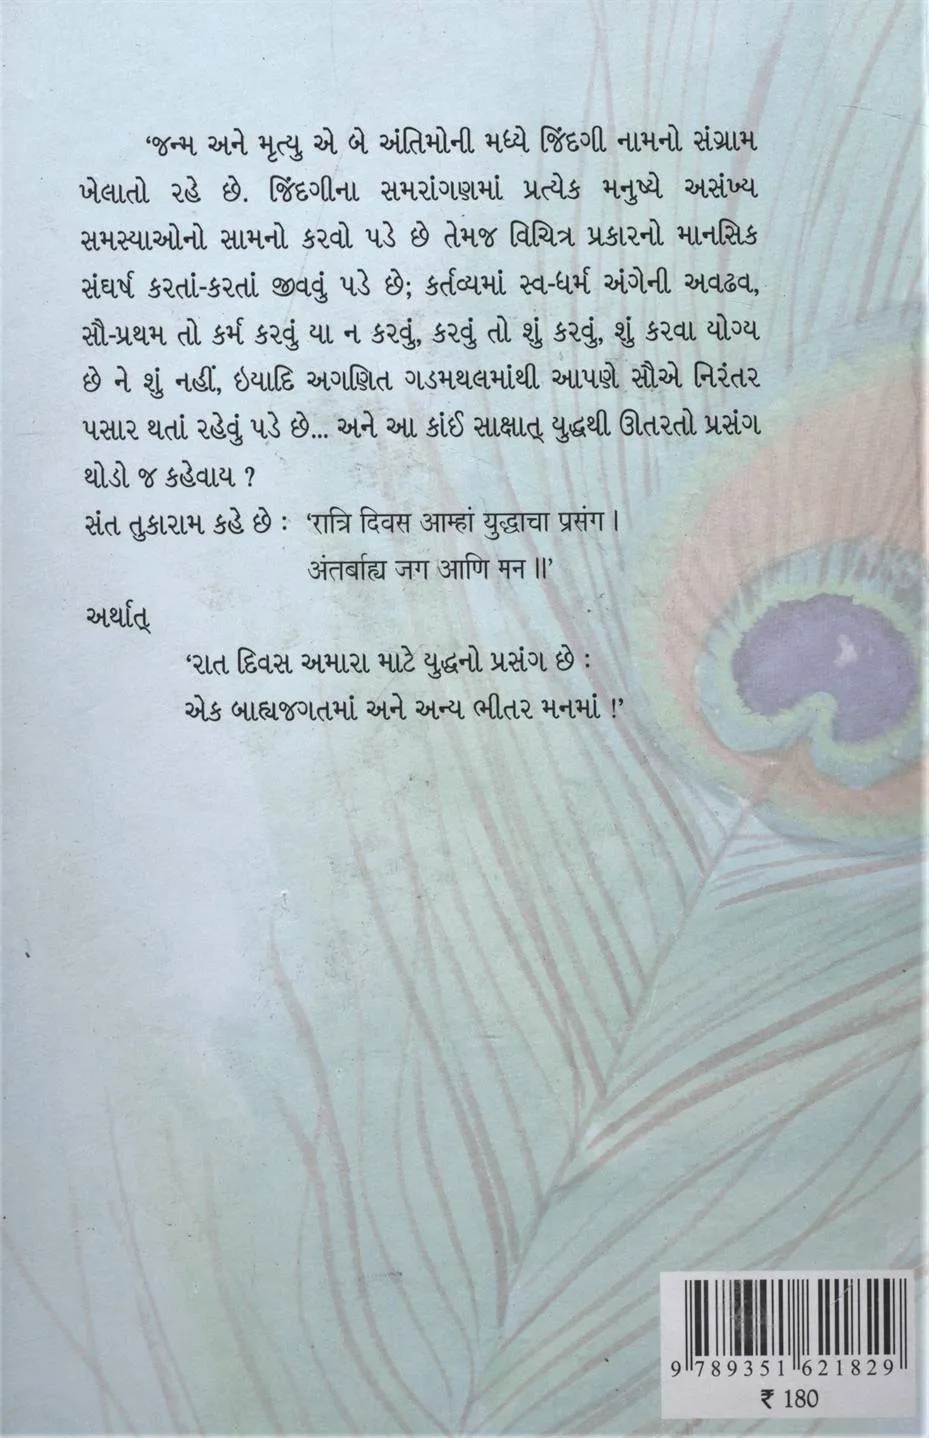 ‘જન્મ અને મૃત્યુ એ બે અંતિમોની મધ્યે જિંદગી નામનો સંગ્રામ
ખેલાતો રહે છે. જિંદગીના સમરાંગણમાં પ્રત્યેક મનુષ્યે અસંખ્ય
સમસ્યાઓનો સામનો કરવો પડે છે તેમજ વિચિત્ર પ્રકારનો માનસિક
સંઘર્ષ કરતાં-કરતાં જીવવું પડે છે; કર્તવ્યમાં સ્વ-ધર્મ અંગેની અવઢવ,
સૌ-પ્રથમ તો કર્મ કરવું યા ન કરવું, કરવું તો શું કરવું, શું કરવા યોગ્ય
છે ને શું નહીં, ઇયાદિ અગણિત ગડમથલમાંથી આપણે સૌએ નિરંતર
પસાર થતાં રહેવું પડે છે... અને આ કાંઈ સાક્ષાત્ યુદ્ધથી ઊતરતો પ્રસંગ
થોડો જ કહેવાય ?
સંત તુકારામ કહે છે : ‘रात्रि दिवस आम्हां युद्धाचा प्रसंग ।
अंतर्बाह्य जग आणि मन ॥’
અર્થાત્
‘રાત દિવસ અમારા માટે યુદ્ધનો પ્રસંગ છે :
એક બાહ્યજગતમાં અને અન્ય ભીતર મનમાં !’
9 789351 621829
₹ 180